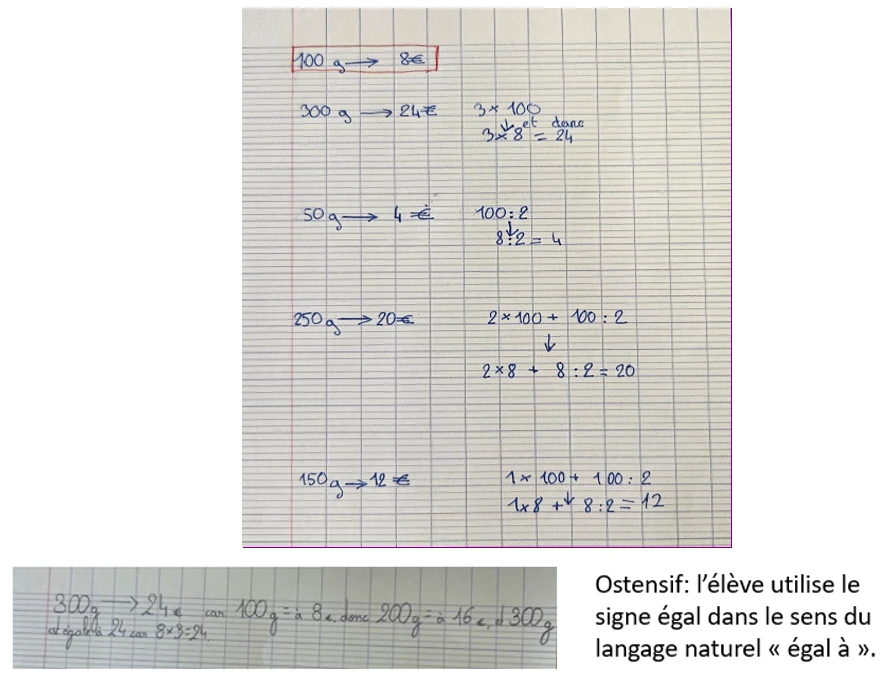 100 g → 8€
300 g → 24€ 3 × 100
↓ et donc
3 × 8 = 24
50 g → 4 € 100 : 2
↓
8 : 2 = 4
250 g → 20€ 2 × 100 + 100 : 2
↓
2 × 8 + 8 : 2 = 20
150 g → 12 € 1 × 100 + 100 : 2
↓
1 × 8 + 8 : 2 = 12
300g → 24€ car 100g = à 8€, donc 200g = à 16€, et 300g
est égale à 24 car 8×3=24.
Ostensif: l’élève utilise le
signe égal dans le sens du
langage naturel « égal à ».